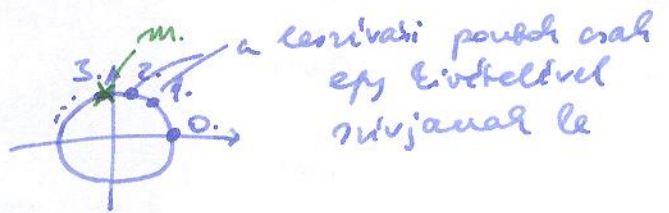 m.
3. 2. a leszívási pontok csak
1. egy kivételével
0. szívjanak le